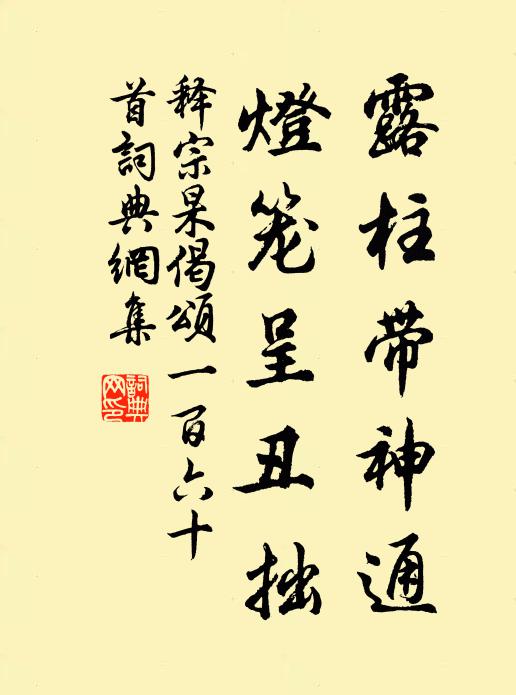 露柱带神通
燈笼呈丑拙
释宗杲偈頌一百六十
首詞典網集
詞典
网印